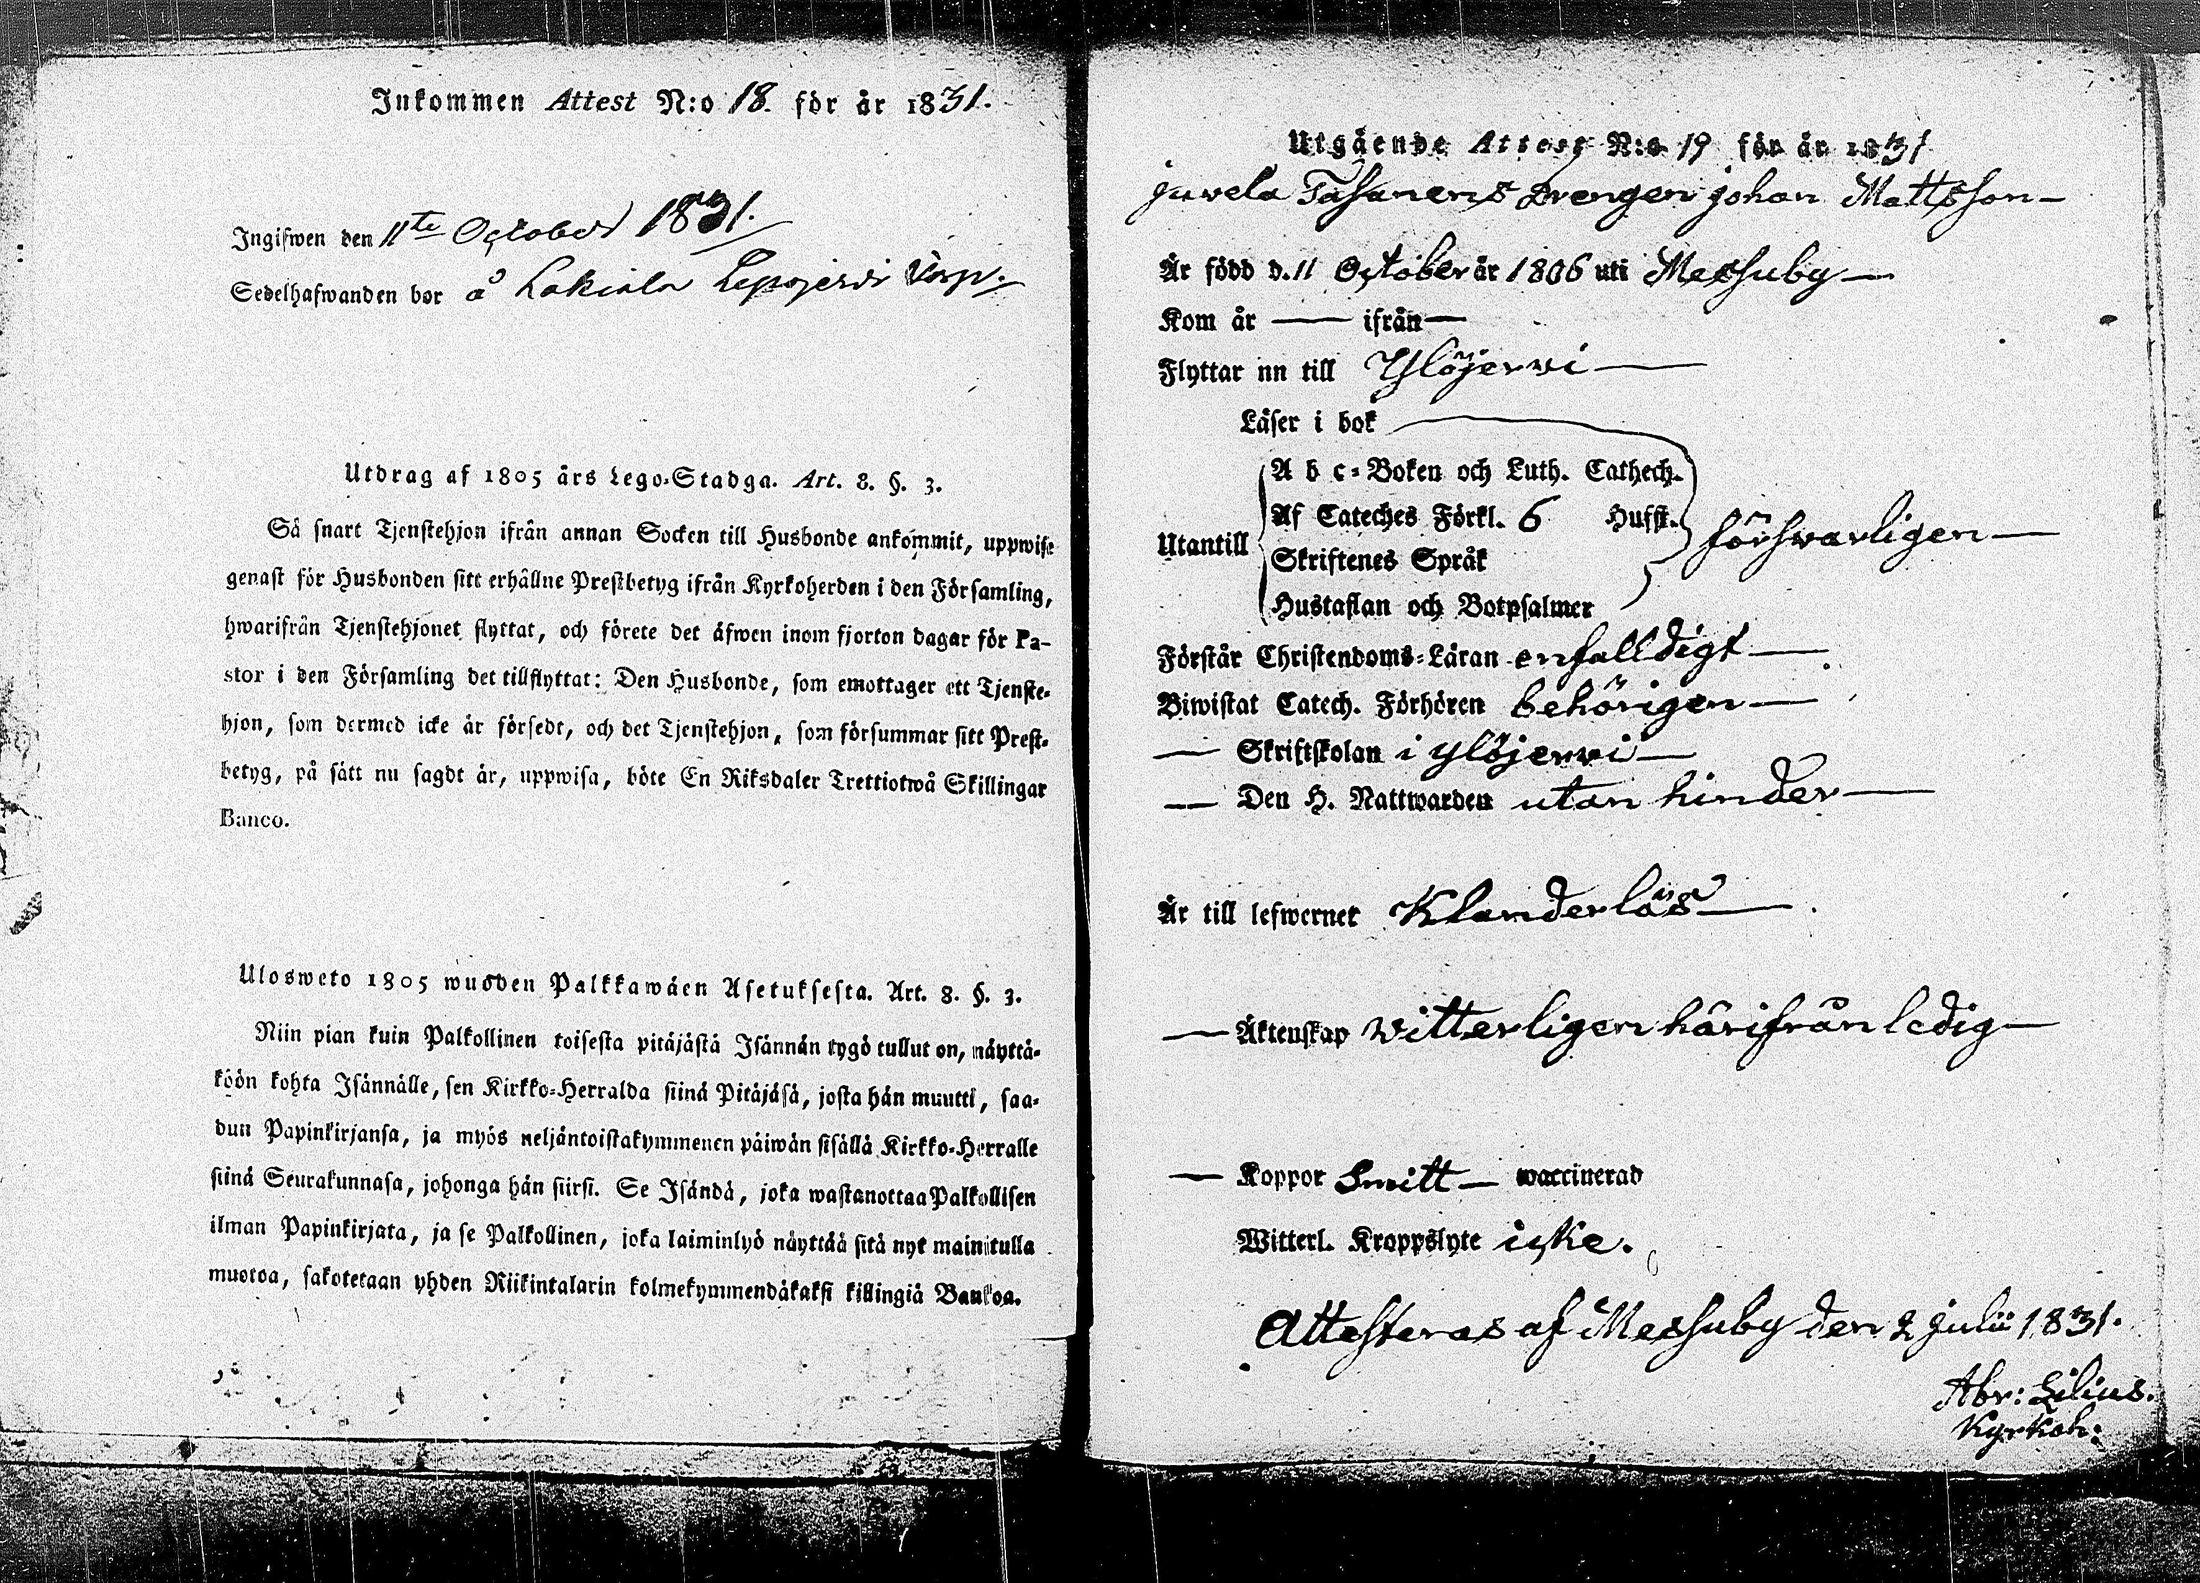 Inkommen Attest N:o 18. för år 1831.
Ingifwen den 11te October 1831.
Sedelhafwanden bor å Lakiala Lepojervi Torp.
Utdrag af 1805 års Lego-Stadga. Art. 8. §. 3.
Så snart Tjenstehjon ifrån annan Socken till Husbonde ankommit, uppwise
genast för Husbonden sitt erhållne Prestbetyg ifrån Kyrkoherden i den Församling,
hwarifrån Tjenstehjonet flyttat, och förete det äfwen inom fjorton dagar för Pa-
stor i den Församling det tillflyttat: Den Husbonde, som emottager ett Tjenste-
hjon, som dermed icke är försedt, och det Tjenstehjon, som försummar sitt Prest-
betyg, på sätt nu sagdt är, uppwisa, böte En Riksdaler Trettiotwå Skillingar
Banco.
Ulosweto 1805 wuoden Palkkawäen Asetuksesta. Art. 8. §. 3.
Niin pian kuin Palkollinen toisesta pitäjästä Isännän tygö tullut on, näyttä-
köön kohta Isännälle, sen Kirkko-Herralda siinä Pitäjäsä, josta hän muutti, saa-
dun Papinkirjansa, ja myös neljäntoistakymmenen päiwän sisällä Kirkko-Herralle
siinä Seurakunnasa, johonga hän siirsi. Se Isändä, joka wastanottaa Palkollisen
ilman Papinkirjata, ja se Palkollinen, joka laiminlyö näyttää sitä nyt mainitulla
muotoa, sakotetaan yhden Riikintalarin kolmekymmendäkaksi killingiä Bankoa.
Utgående Attest N:o 19 för år 1831
juvela Tasanens Drengen johan Mattsson—
Är född d. 11 October år 1806 uti Messuby—
Kom år — ifrån —
Flyttar nu till Ylöjervi—
Läser i bok
A b c-Boken och Luth. Cathech.
Af Cateches Förkl. 6 Hufst.
Utantill försvarligen—
Skriftenes Språk
Hustaflan och Botpsalmer
Förstår Christendoms-Läran enfalldigt—
Biwistat Catech. Förhören behörigen—
— Skriftskolan i Ylöjervi—
— Den H. Nattwarden utan hinder—
Är till lefwernet Klanderlös—
— Äktenskap witterligen härifrån ledig—
— Koppor Smitt — waccinerad
Witterl. Kroppslyte icke.
Attesteras af Messuby den 2 julii 1831.
Abr: Lilius.
Kyrkoh: